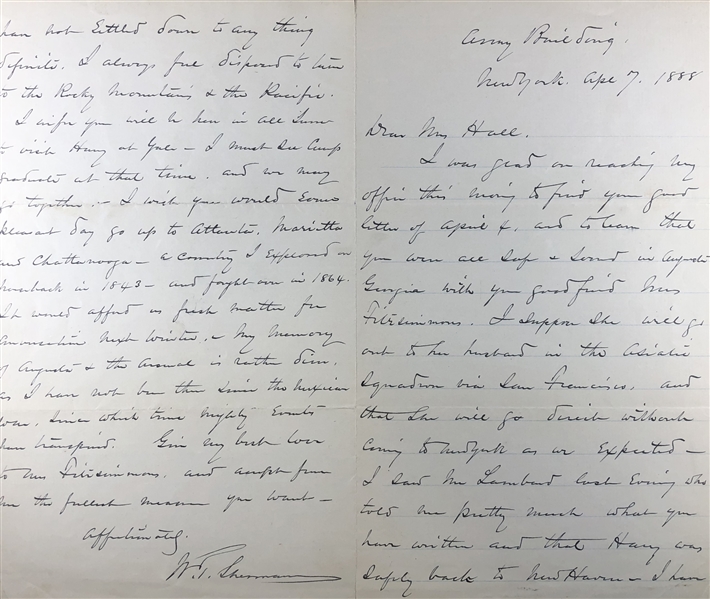 Army Building.
New York. Apl 7. 1888
Dear Mrs Hall.
I was glad on reaching my
office this morning to find your good
letter of April 4, and to learn that
you were all safe & sound in Augusta
Georgia with your good friend Mrs
Fitzsimmons. I suppose she will go
out to her husband in the Asiatic
Squadron via San Francisco, and
that she will go direct without
coming to New York as we expected —
I saw Mr Lambard last Evening who
told me pretty much what you
have written and that Harry was
safely back to New Haven — I have
have not settled down to any thing
definite. I always feel disposed to turn
to the Rocky Mountains & the Pacific.
I infer you will be here in all June
to visit Harry at Yale — I must see
graduate at that time. and we may
go together. — I wish you would some
pleasant day go up to Atlanta, Marietta
and Chattanooga — a country I explored on
horseback in 1843 — and fought over in 1864.
It would afford us fresh matter for
conversation next winter. — My memory
of Augusta & the Arsenal is rather dim,
as I have not been there since the Mexican
War, since which time mighty Events
have transpired. Give my best love
to Mrs Fitzsimmons. and accept from
me the fullest measure you want —
Affectionately.
W. T. Sherman